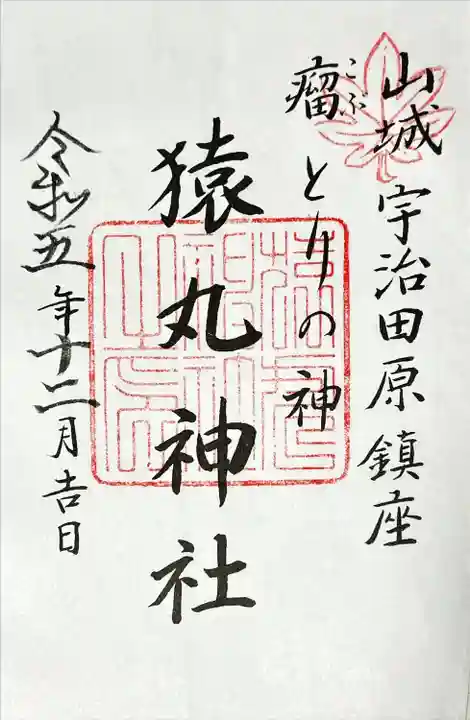 山城 宇治田原鎮座
瘤とりの神
こぶ
猿丸神社
令和五年十二月吉日